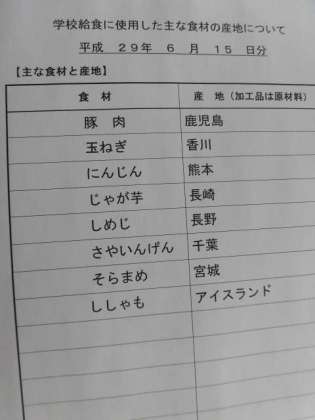 学校給食に使用した主な食材の産地について
平成 29年 6 月 15 日分
【主な食材と産地】
食 材 産 地（加工品は原材料）
豚 肉 鹿児島
玉ねぎ 香川
にんじん 熊本
じゃが芋 長崎
しめじ 長野
さやいんげん 千葉
そらまめ 宮城
ししゃも アイスランド